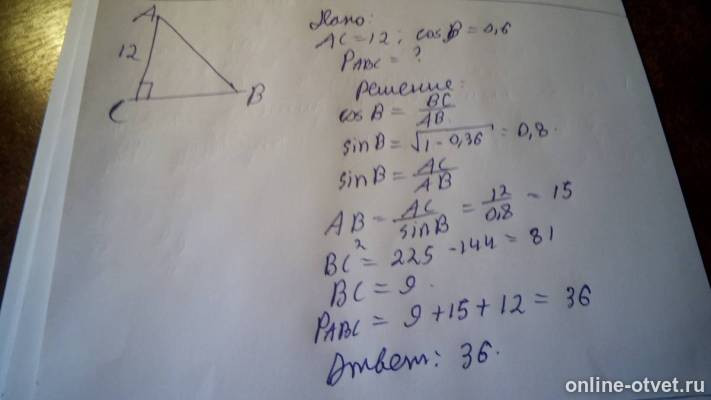 A
12
C
B
Дано:
AC = 12; cos B = 0,6
P_ABC = ?
Решение:
cos B = BC/AB
sin B = √(1 - 0,36) = 0,8.
sin B = AC/AB
AB = AC/sin B = 12/0,8 - 15
BC² = 225 - 144 = 81
BC = 9.
P_ABC = 9 + 15 + 12 = 36
Ответ: 36.
online-otvet.ru